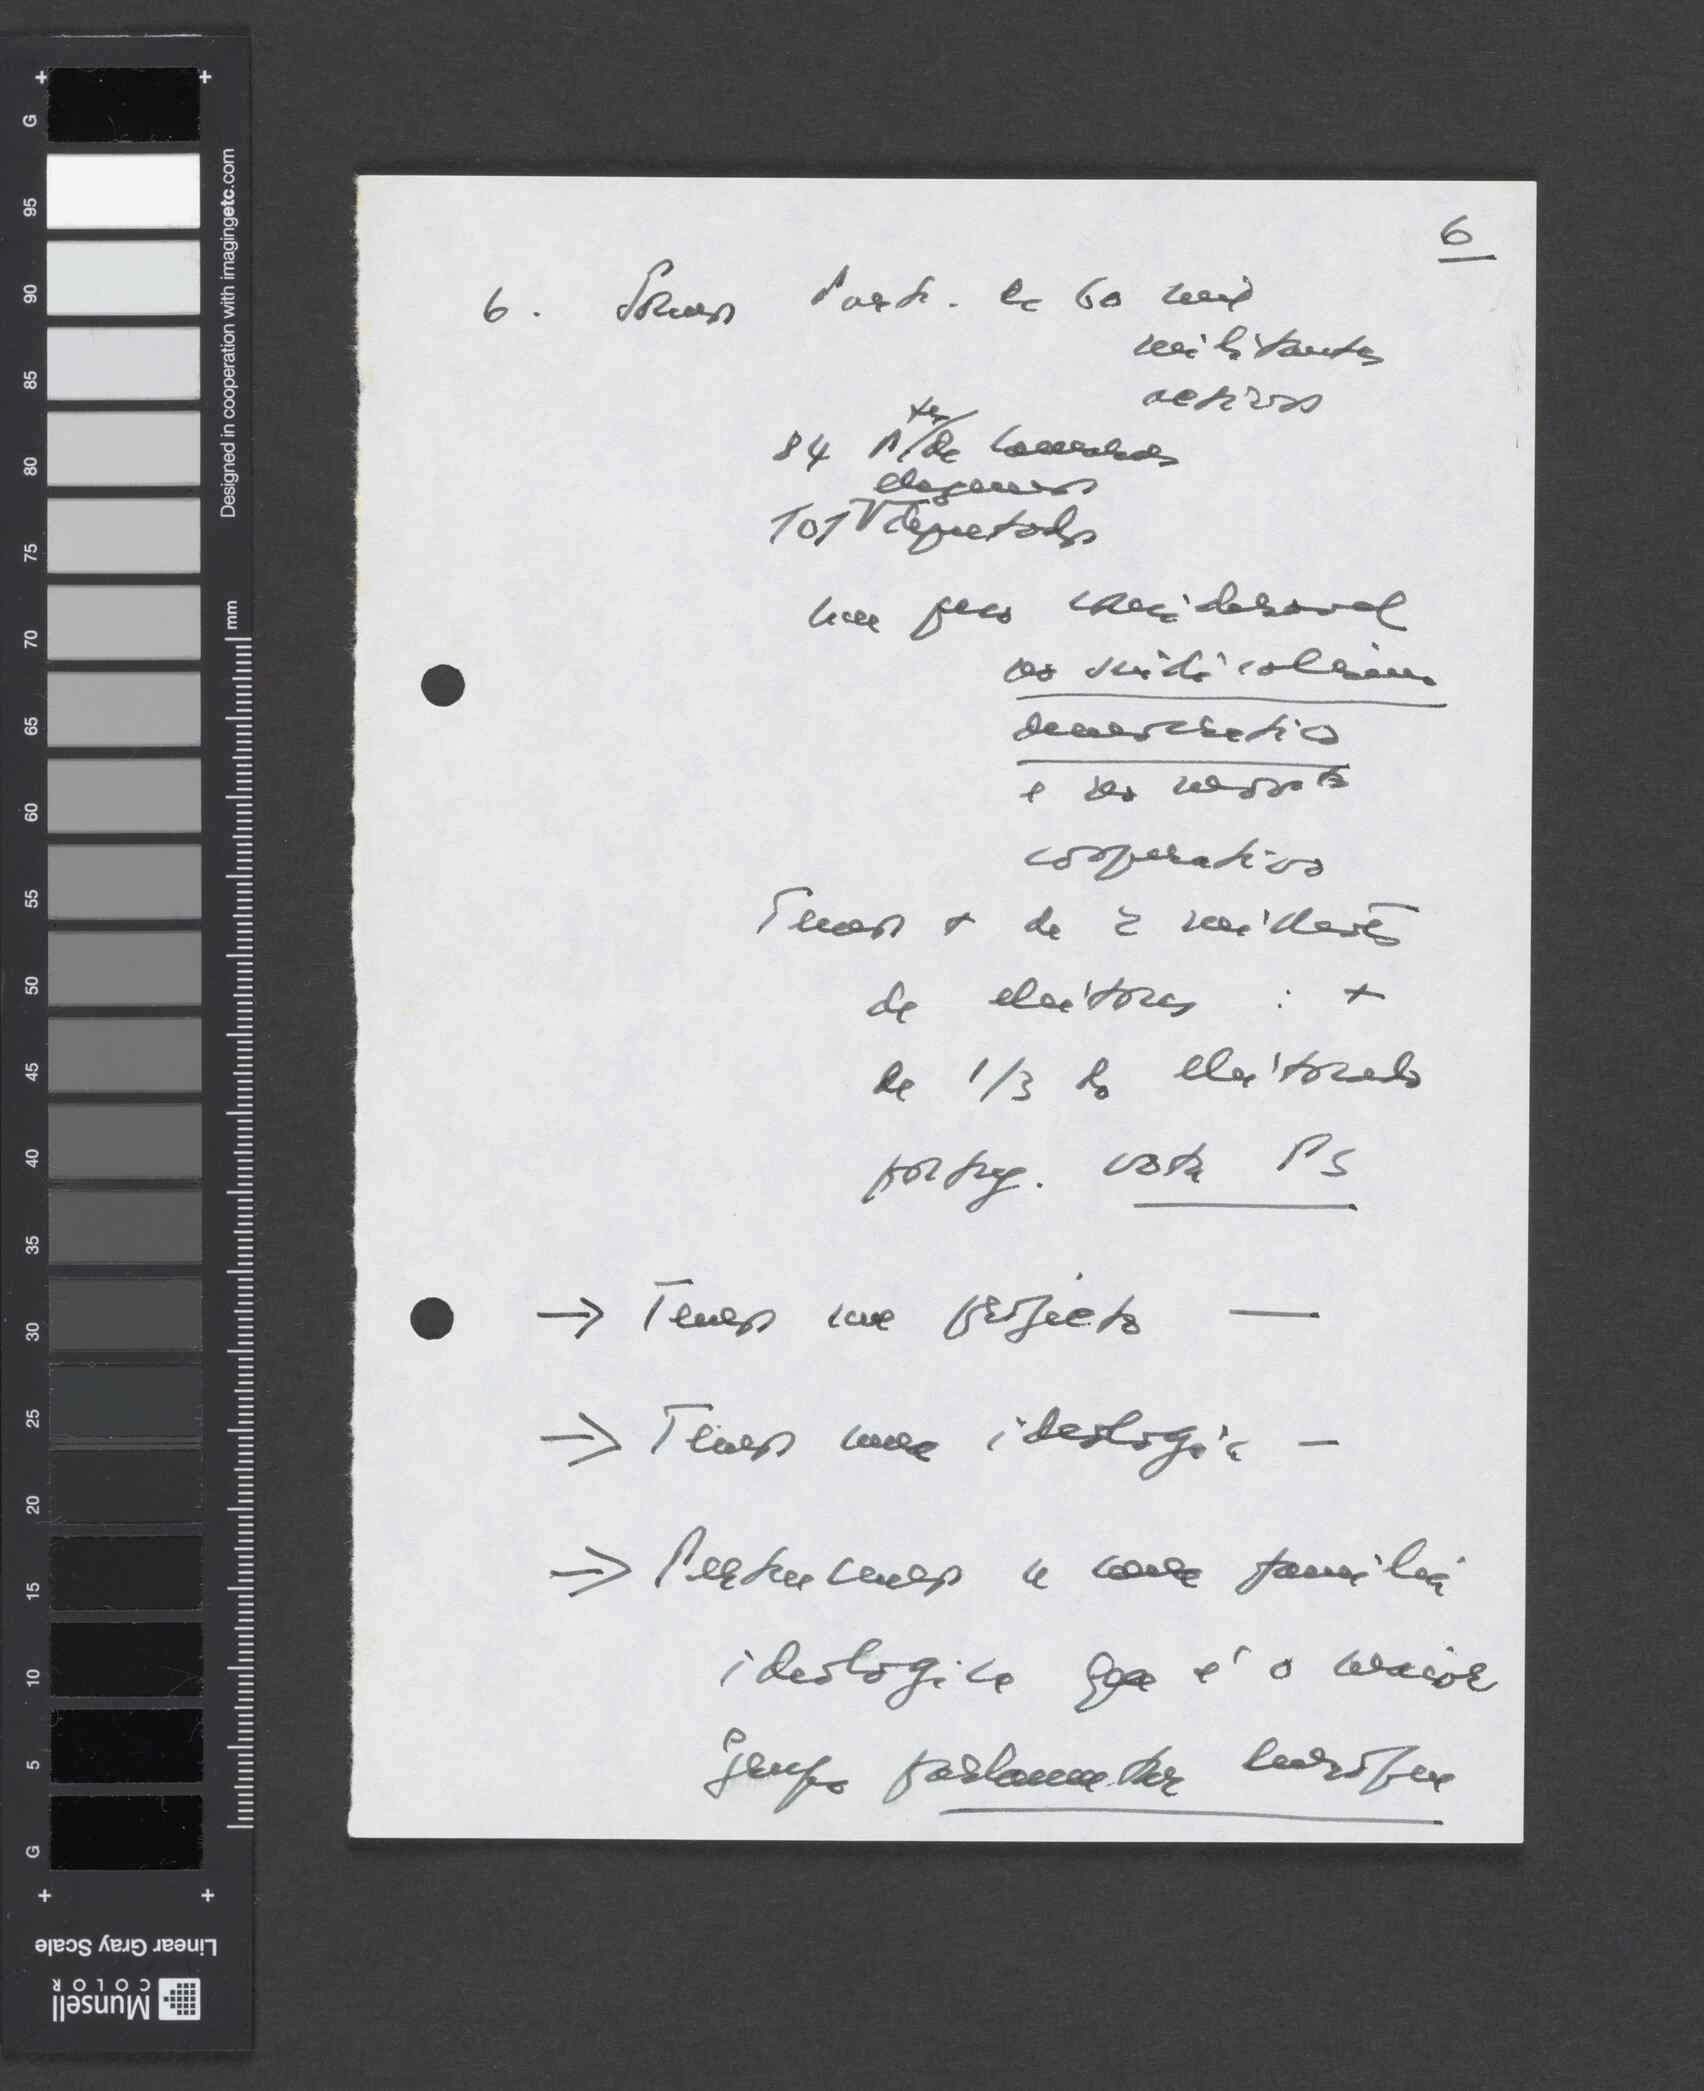 6
6. Somos Part. de 60 mil
militantes
activos
84 P/tes de Camaras
101 deputados
um peso consideravel
no sindicalismo
democratico
e no movto
cooperativo
Temos + de 2 milhões
de eleitores : +
de 1/3 do eleitorado
portug. vota PS
→ Temos um projecto —
⇒ Temos uma ideologia —
⇒ Pertencemos a uma familia
ideologica que é o maior
grupo parlamentar europeu
G
95
90
85
80
75
70
65
60
55
50
45
40
35
30
25
20
15
10
5
G
Designed in cooperation with imagingetc.com
mm
Linear Gray Scale
Munsell
COLOR